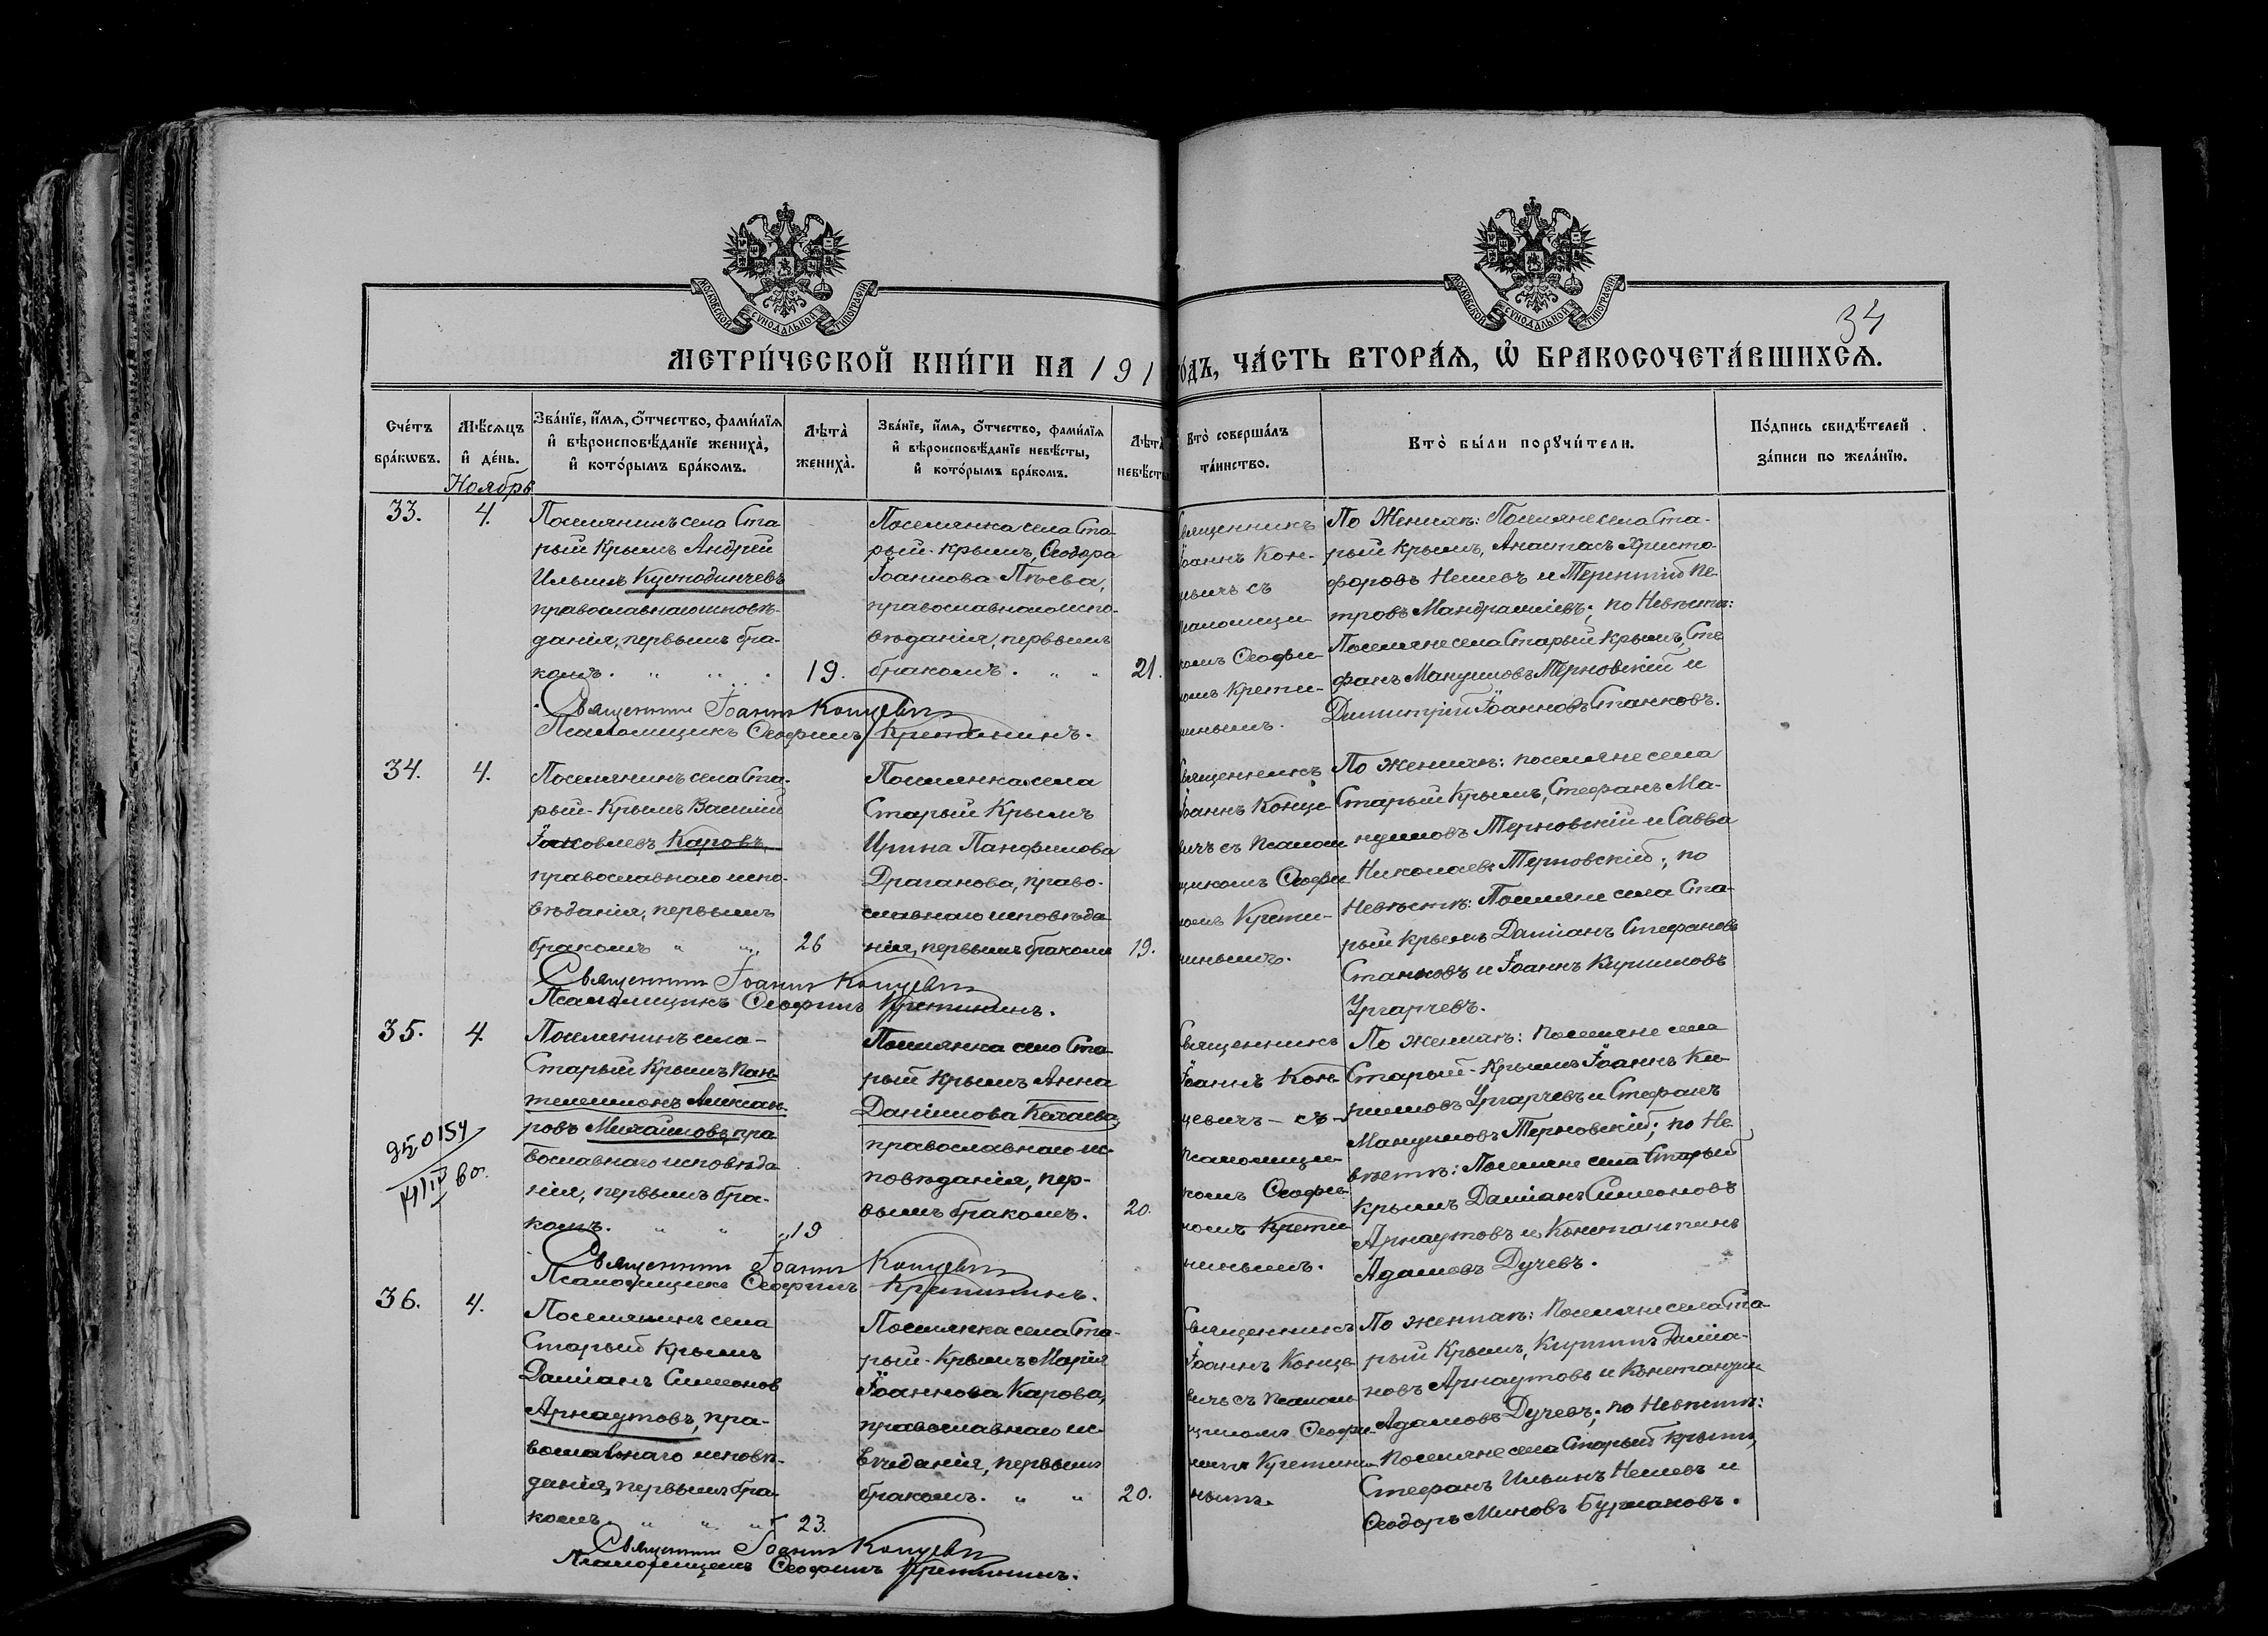 34
МОСКОВСКОЙ СѴНОДАЛЬНОЙ ТИПОГРАФІИ
МОСКОВСКОЙ СѴНОДАЛЬНОЙ ТИПОГРАФІИ
МЕТРИ́ЧЕСКОЙ КНИ́ГИ НА 191
О́ДЪ, ЧА́СТЬ ВТОРА́Я, Ѡ҆ БРАКОСОЧЕТА́ВШИХСЯ.
Сче́тъ бра́кѡвъ.
Мѣ́сяцъ и҆ де́нь.
Ноябрь
Зва́нїе, и҆́мя, ѻ҆́тчество, фами́лїя
и҆ вѣроисповѣ́данїе жениха̀,
и҆ кото́рымъ бра́комъ.
Лѣта̀ жениха̀.
Зва́нїе, и҆́мя, ѻ҆́тчество, фами́лїя
и҆ вѣроисповѣ́данїе невѣ́сты,
и҆ кото́рымъ бра́комъ.
Лѣта̀ невѣ́сты
Кто̀ соверша́лъ
та́инство.
Кто̀ бы́ли порꙋчи́тели.
По́дпись свидѣ́телей
за́писи по жела́нїю.
33.
4.
Поселянинъ села Ста-
рый Крымъ Андрей
Ильинъ Кустодинчевъ
православнаго исповѣ-
данія, первымъ бра-
комъ.
19.
Поселянка села Ста-
рый-Крымъ, Ѳеодора
Іоаннова Пѣева,
православнаго испо-
вѣданія, первымъ
бракомъ.
21.
вященникъ
Іоаннъ Кон-
цевичъ съ
псаломщи-
комъ Ѳеофи-
ломъ Крети-
нинымъ.
По Женихѣ: Поселяне села Ста-
рый Крымъ, Анастасъ Христо-
форовъ Нешевъ и Терентій Пе-
тровъ Мандрашіевъ; по Невѣстѣ:
Поселяне села Старый Крымъ, Сте
фанъ Мануиловъ Терновскій и
Димитрій Іоанновъ Станковъ.
Священникъ Іоаннъ Концевичъ
Псаломщикъ Ѳеофилъ Кретининъ.
34.
4.
Поселянинъ села Ста-
рый-Крымъ Василій
Іаковлевъ Каровъ,
православнаго испо-
вѣданія, первымъ
бракомъ
26
Поселянка села
Старый Крымъ
Ирина Панфилова
Драганова, право-
славнаго исповѣда
нія, первымъ бракомъ
19.
вященникъ
Іоаннъ Конце-
вичъ съ псалом
щикомъ Ѳеофи
ломъ Крети-
нинымъ.
По женихѣ: поселяне села
Старый Крымъ, Стефанъ Ма-
нуиловъ Терновскій и Савва
Николаевъ Терновскій; по
Невѣстѣ: Поселяне села Ста-
рый Крымъ Даміанъ Стефановъ
Станковъ и Іоаннъ Кирилловъ
Ургарчевъ.
Священникъ Іоаннъ Концевичъ
Псаломщикъ Ѳеофилъ Кретининъ.
35.
4.
Поселянинъ села-
Старый Крымъ Пан-
телеимонъ Алексан-
ровъ Михаиловъ, пра
вославнаго исповѣда
нія, первымъ бра-
комъ.
19
Поселянка село Ста-
рый Крымъ Анна
Даніилова Кечаева,
православнаго ис-
повѣданія, пер-
вымъ бракомъ.
20.
вященникъ
Іоаннъ Кон-
цевичъ - съ -
псаломщи-
комъ Ѳеофи-
ломъ Крети-
нинымъ.
По женихѣ: Поселяне села
Старый-Крымъ Іоаннъ Ки-
рилловъ Ургарчевъ и Стефанъ
Мануиловъ Терновскій; по Не
вѣстѣ: Поселяне села Старый
Крымъ Даміанъ Симеоновъ
Арнаутовъ и Константинъ
Адамовъ Дучевъ.
Священникъ Іоаннъ Концевичъ
Псаломщикъ Ѳеофилъ Кретининъ.
36.
4.
Поселянинъ села
Старый Крымъ
Даміанъ Симеонов
Арнаутовъ, пра-
вославнаго исповѣ-
данія, первымъ бра-
комъ
23.
Поселянка села Ста-
рый-Крымъ Марія
Іоаннова Карова,
православнаго ис-
вѣданія, первымъ
бракомъ.
20.
вященникъ
Іоаннъ Конце-
вичъ съ псалом
щикомъ Ѳеофи-
ломъ Кретини-
нымъ.
По женихѣ: Поселяне села Ста-
рый Крымъ, Кириллъ Даміа-
новъ Арнаутовъ и Константин
Адамовъ Дучевъ; по Невѣстѣ:
Поселяне села Старый Крымъ,
Стефанъ Ильинъ Нешевъ и
Ѳеодоръ Миновъ Бурлаковъ.
Священникъ Іоаннъ Концевичъ
Псаломщикъ Ѳеофилъ Кретининъ.